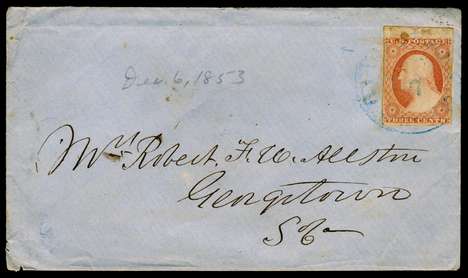 U.S. POSTAGE
THREE CENTS
Dec. 6, 1853
Mrs Robert. F. W. Allston
Georgetown
So Ca